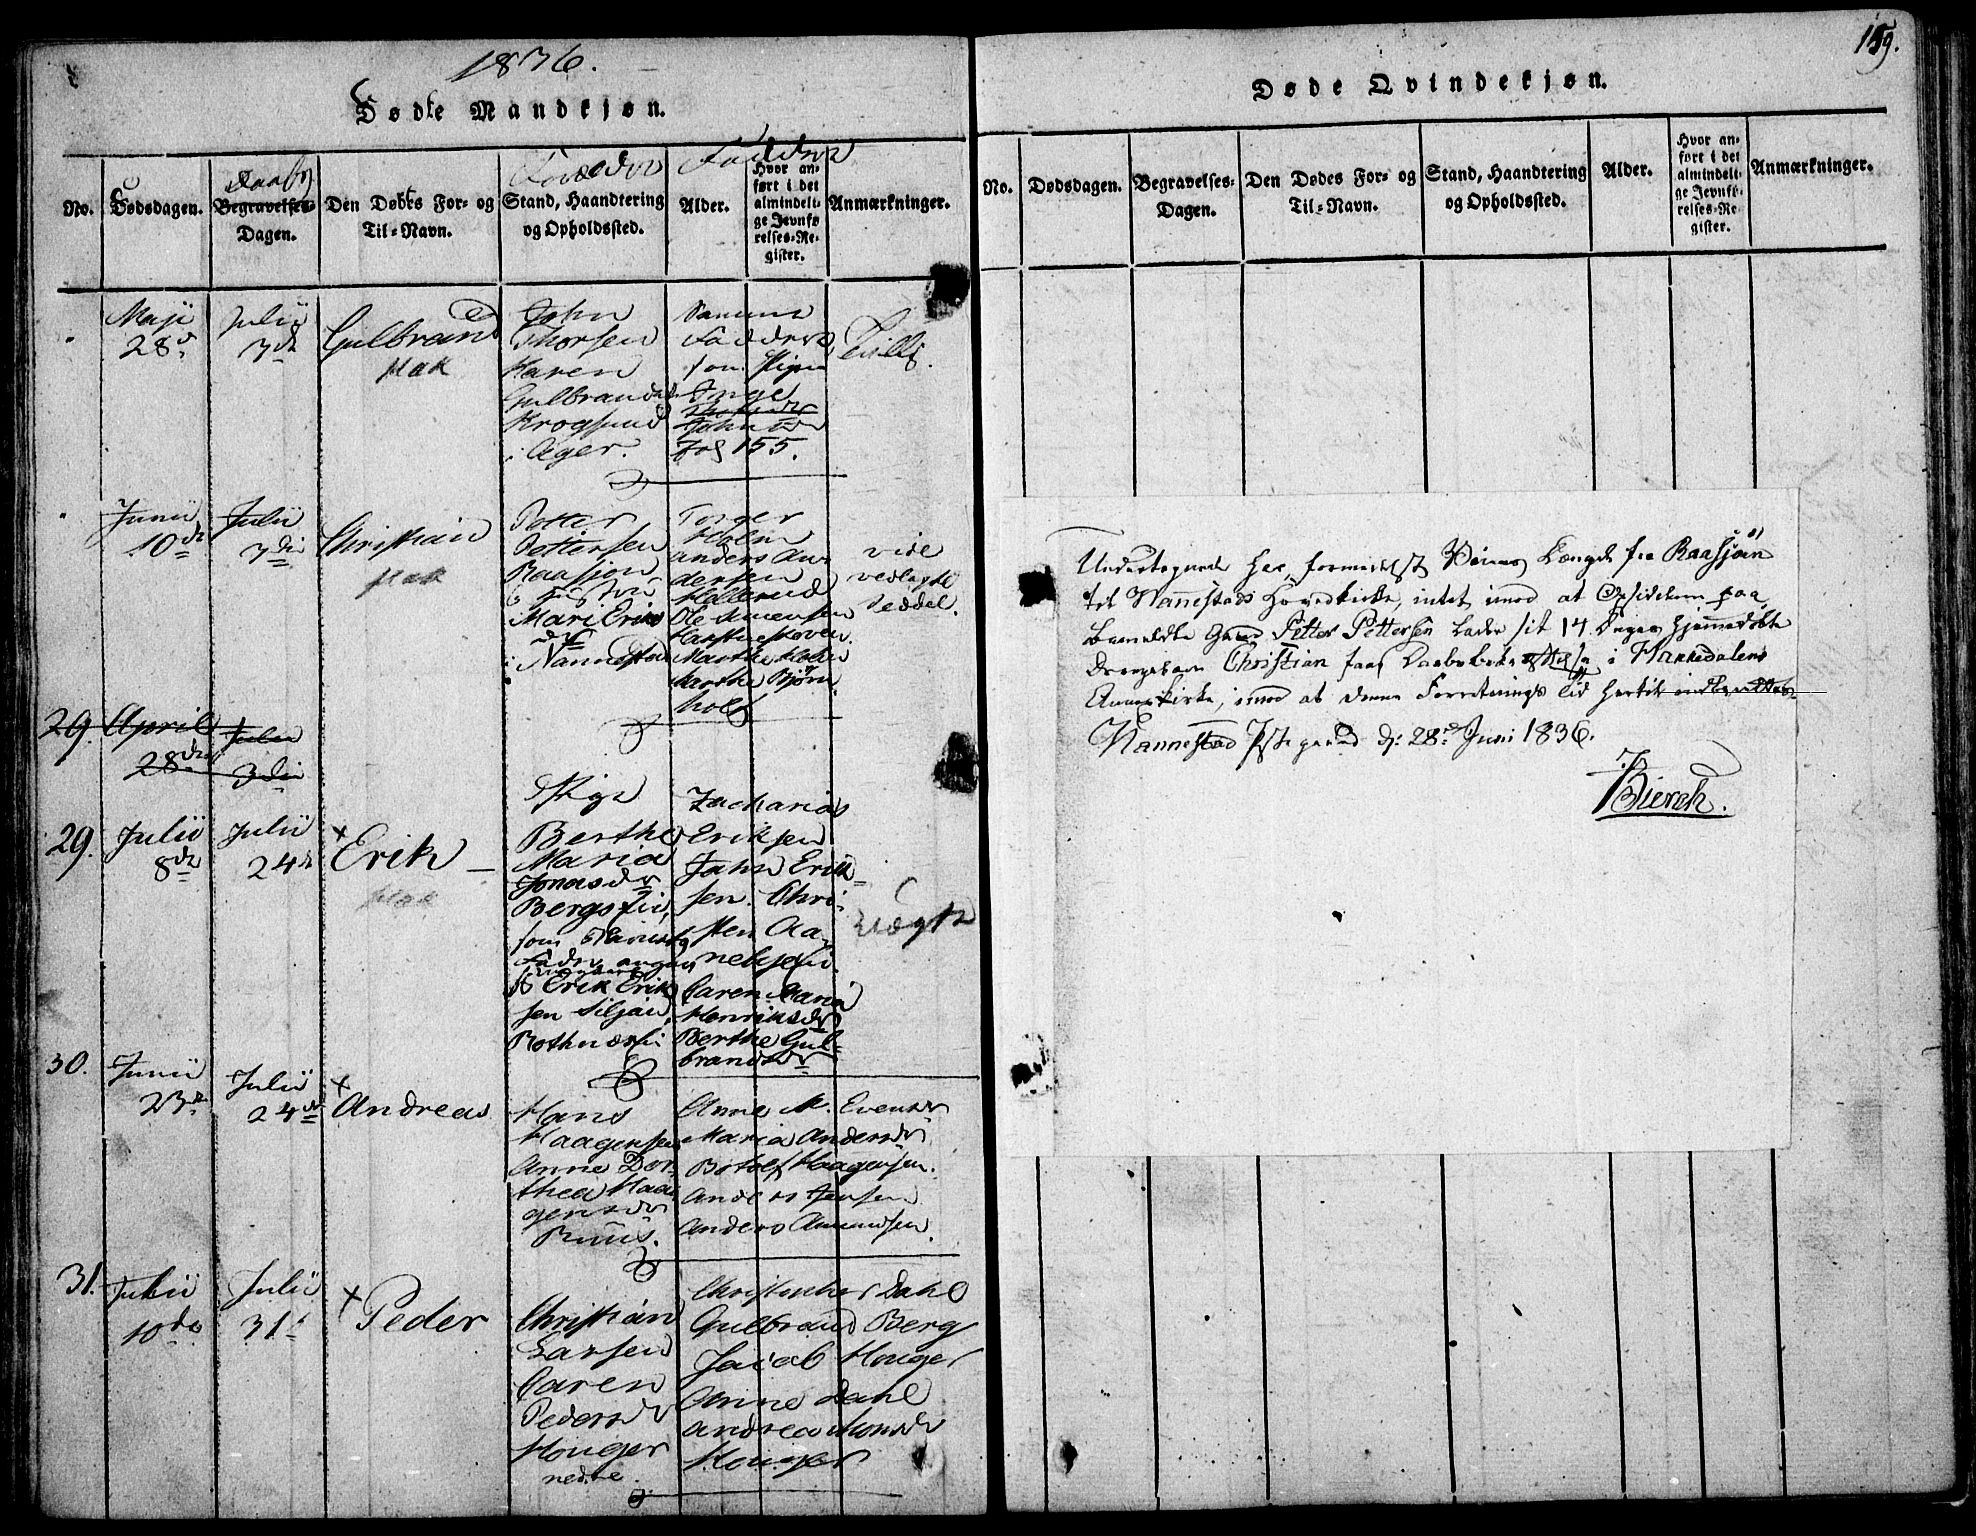 1836.
Dødte Mandkjøn.
Daabs
Forældre Faddere
No.
Dødsdagen.
Begravelses-
Dagen.
Den Dødes For- og
Til-Navn.
Stand, Haandtering
og Opholdssted.
Alder.
Hvor an-
ført i det
almindeli-
ge Jevnfø
relses-Re-
gister.
Anmærkninger.
Maji
28de
Julii
3de
Gulbrand
John
Thorsen
Karen
Gulbrandsdr
Krogsund
i Ager.
Samme
Faddere
som Pigen
Inge
Johnsdr
Fol 155.
Tvill.
Junii
10de
Julii
3die
Christian
Petter
Pettersen
Raasjøn
Mari Eriks
dr
i Nannestad
Torger
Holm
Anders An-
dersen
Møllerud
Ole Simensen
Marthe Holm
Marthe Bjørn
holt
vide
vedlagte
Seddel.
29. April
28de
Julii
3die
29.
Julii
8de
Julii
24de
Erik
Pige
Berthe
Maria
Jonasdr
Bergstui,
som
Fader angav
Erik Erik
sen Siljai
Zacharias
Eriksen
John Erik-
sen. Chri-
sten Aa-
Caren Maria
Henriksdr
Berthe Gul-
brandsdr
uægte
30.
Junii
23de
Julii
24de
Andreas
Hans
Haagensen
Anne Dor-
thea Haa-
gensdr
Ruus.
Anne M. Evensdr
Maria Andersdr
Botolf Haagensen.
Anders Jensen
Anders Amundsen.
31.
Julii
10de
Julii
31te
Peder
Christian
Larsen
Caren
Pedersdr
Houger
nedre.
Christopher Dahl
Gulbrand Berg
Jacob Houger
Anne Dahl
Andrea Monsdr
Houger
159.
Døde Qvindekjøn.
No.
Dødsdagen.
Begravelses-
Dagen.
Den Dødes For- og
Til-Navn.
Stand, Haandtering
og Opholdssted.
Alder.
Hvor an-
ført i det
almindeli-
ge Jevnfø-
relses-Re-
gister.
Anmærkninger.
Undertegnede har, formedelst Veiens Længde fra Raasjøen
til Nannestads Hovedkirke, intet imod at Opsidderen paa
bemeldte Gaard Petter Pettersen lader sit 14 Dage hjemmedøbte
Drengebarn Christian faae Daabsbekræftelse i Hakkedalens
Annexkirke, imod at denne Forretnings Tid hertil indberettes
Nannestad Præstegaard d: 28de Juni 1836.
Bierch.